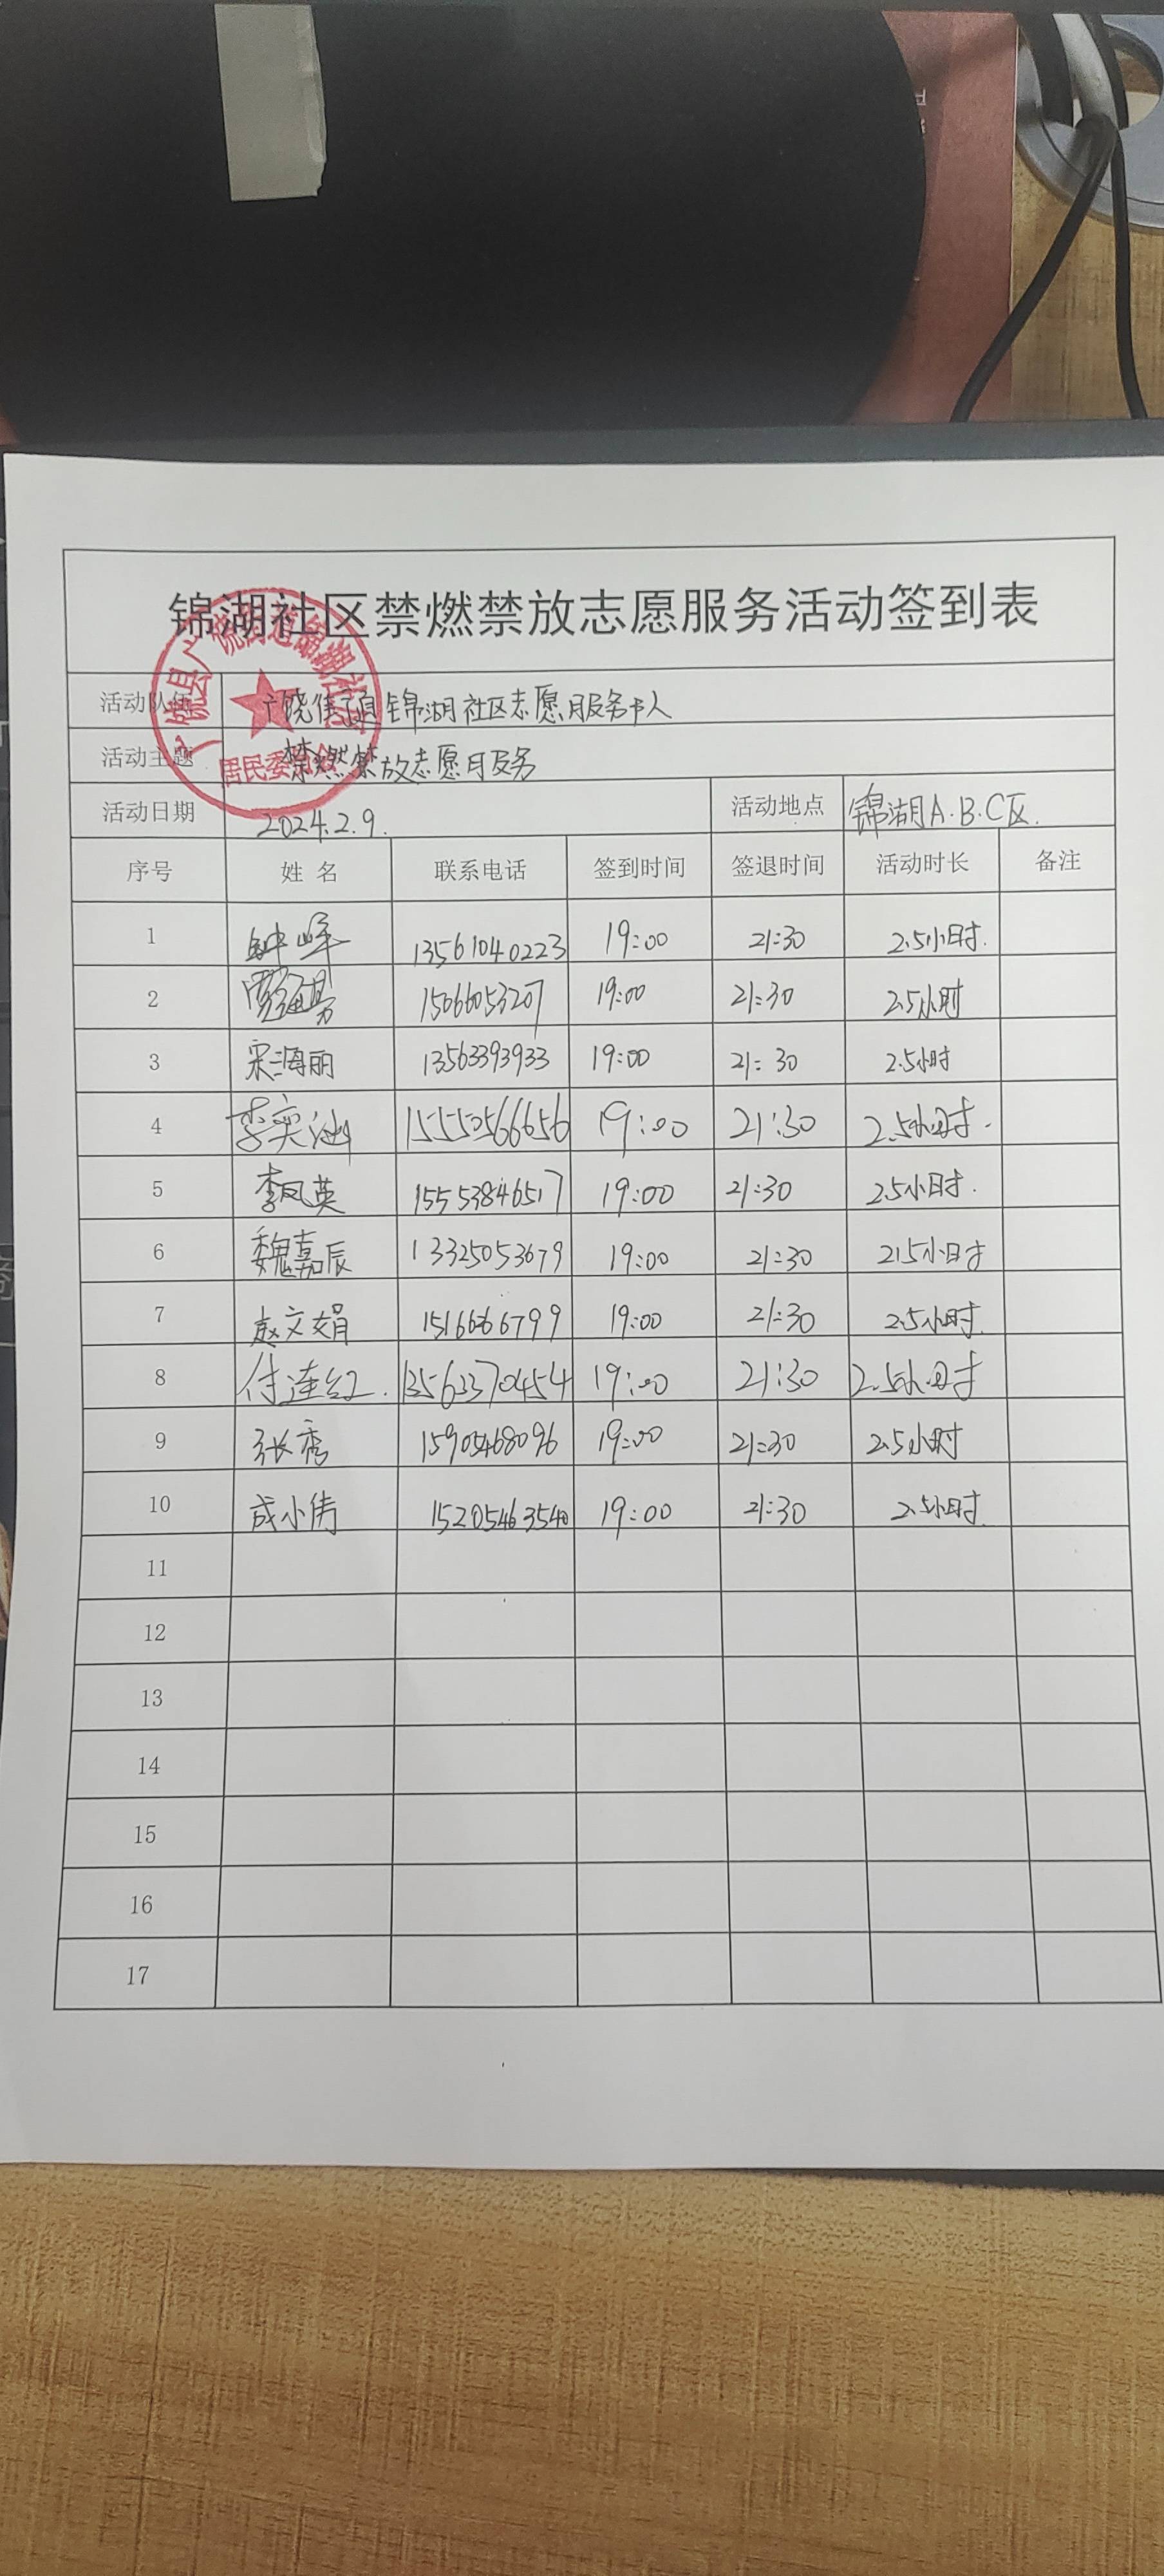 锦湖社区禁燃禁放志愿服务活动签到表
活动队伍 广饶街道锦湖社区志愿服务
活动主题 禁燃禁放志愿服务
活动日期 2024.2.9. 活动地点 锦湖A.B.C区.
序号 姓名 联系电话 签到时间 签退时间 活动时长 备注
1 钟峰 13561040223 19:00 21:30 2.5小时.
2 15066053207 19:00 21:30 2.5小时
3 宋海丽 13563393933 19:00 21:30 2.5小时
4 李奕 15550566656 19:00 21:30 2.5小时.
5 李凤英 15553846517 19:00 21:30 2.5小时.
6 魏嘉辰 13325053679 19:00 21:30 2.5小时
7 赵文娟 15166266799 19:00 21:30 2.5小时.
8 付连红. 13563370454 19:00 21:30 2.5小时
9 张秀 15905468096 19:00 21:30 2.5小时
10 成小倩 15205463540 19:00 21:30 2.5小时.
11
12
13
14
15
16
17
居民委员会